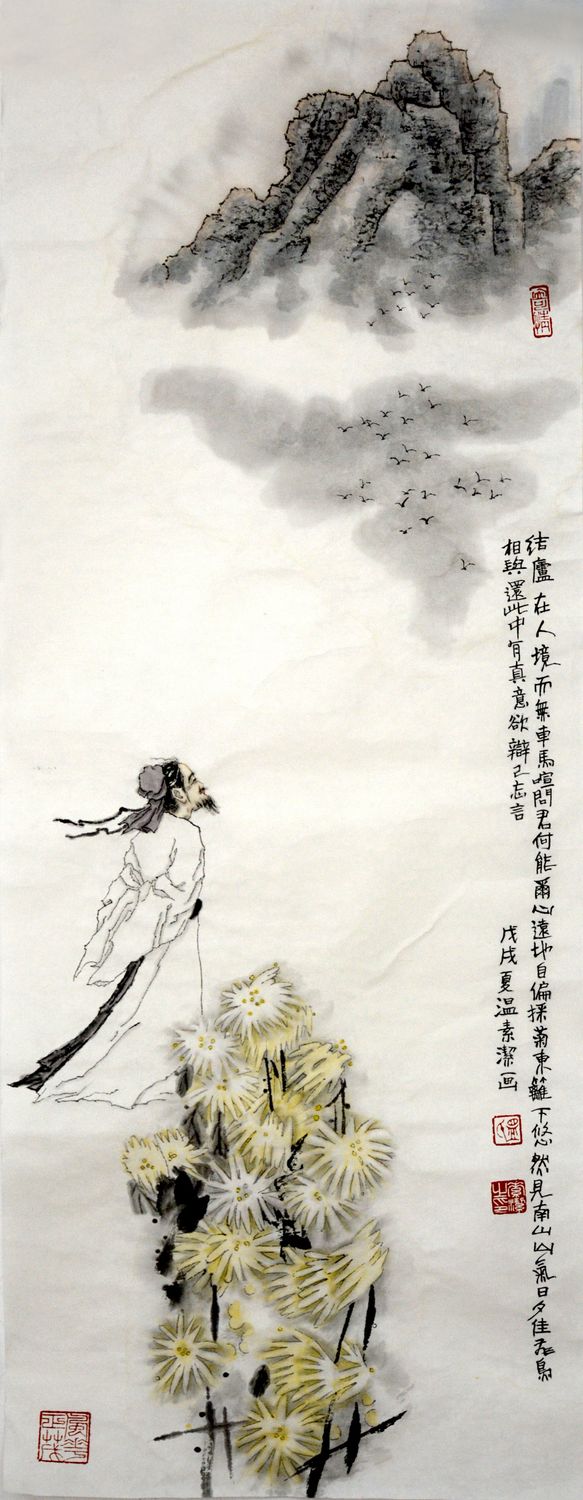 結廬在人境而無車馬喧問君何能爾心遠地自偏採菊東籬下悠然見南山山氣日夕佳飛鳥
相與還此中有真意欲辯已忘言
戊戌夏溫素潔画
素潔之印